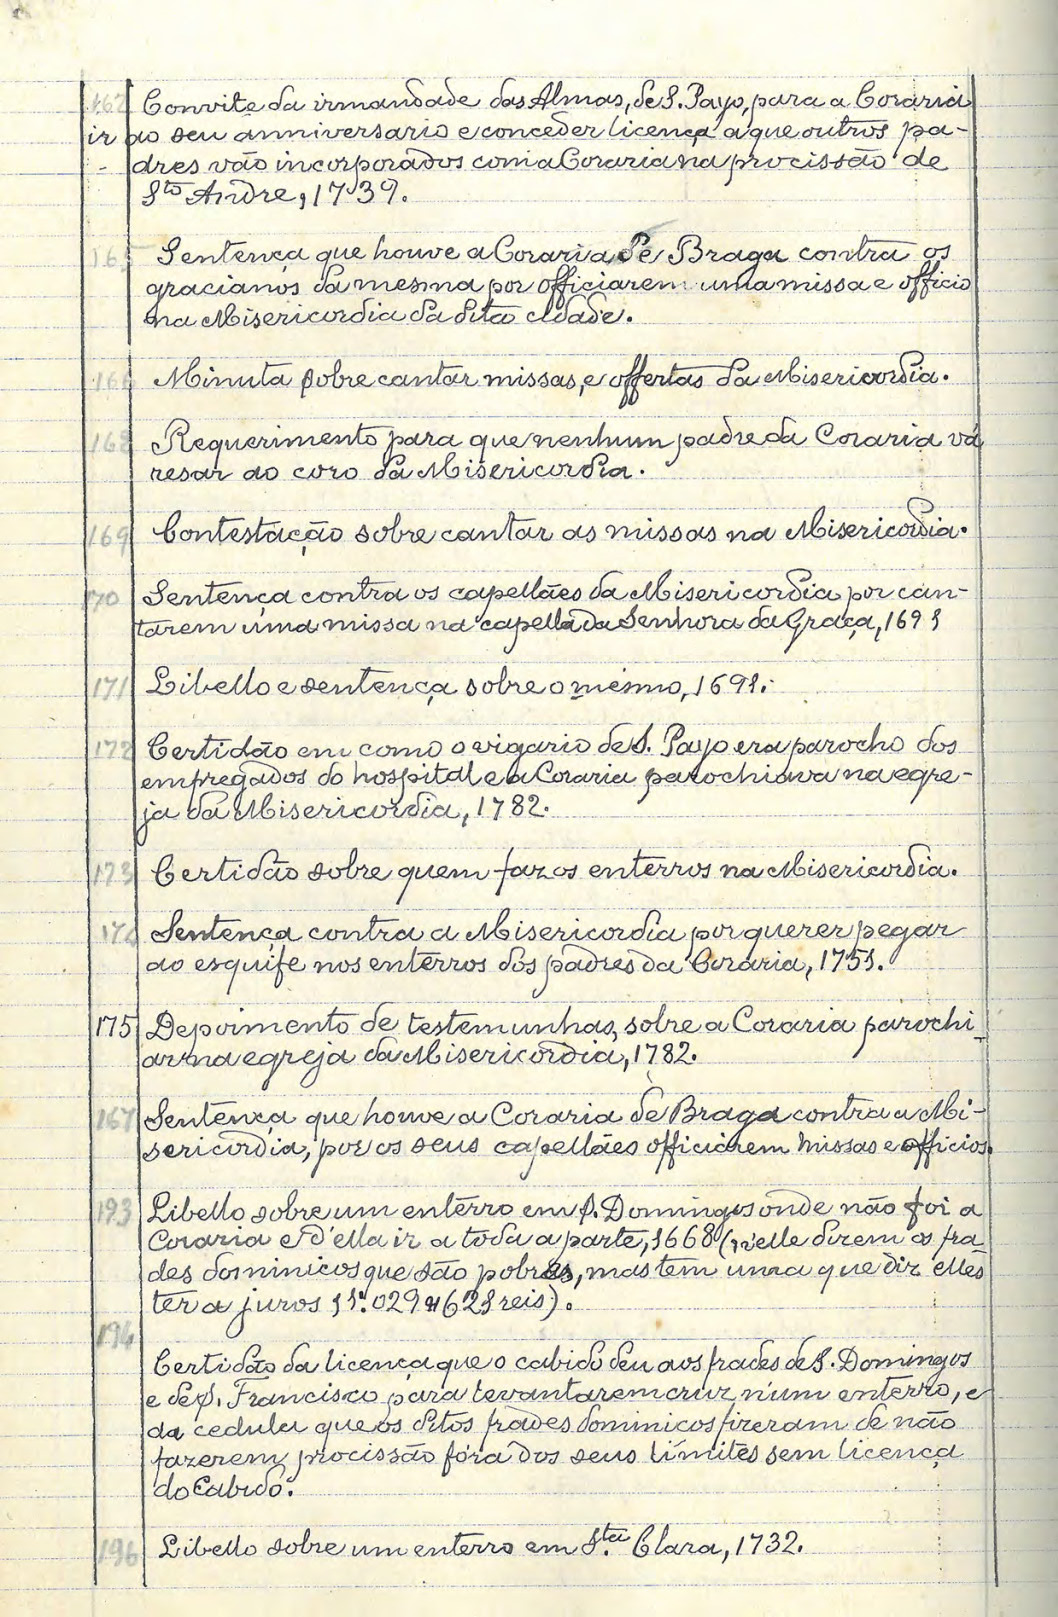 162 Convite da irmandade das Almas, de S. Payo, para a Coraria
ir ao seu anniversario e conceder licença a que outros pa-
dres vão incorporados com a Coraria na procissão de
Sto Andre, 1739.
165 Sentença que houve a Coraria de Braga contra os
gracianos da mesma por officiarem uma missa e officio
na Misericordia da dita cidade.
166 Minuta sobre cantar missas, e offertas da Misericordia.
168 Requerimento para que nenhum padre da Coraria vá
resar ao coro da Misericordia.
169 Contestação sobre cantar as missas na Misericordia.
170 Sentença contra os capellães da Misericordia por can-
tarem uma missa na capella da Senhora da Graça, 1691
171 Libello e sentença sobre o mesmo, 1691.
172 Certidão em como o vigario de S. Payo era parocho dos
empregados do hospital e a Coraria parochiava na egre-
ja da Misericordia, 1782.
173 Certidão sobre quem faz os enterros na Misericordia.
174 Sentença contra a Misericordia por querer pegar
ao esquife nos enterros dos padres da Coraria, 1751.
175 Depoimento de testemunhas, sobre a Coraria parochi-
ar na egreja da Misericordia, 1782.
167 Sentença que houve a Coraria de Braga contra a Mi-
sericordia, por os seus capellães officiarem missas e officios.
193 Libello sobre um enterro em S. Domingos onde não foi a
Coraria e d'ella ir a toda a parte, 1668 (n'elle dizem os fra-
des dominicos que são pobres, mas tem uma que diz elles
ter a juros 11:029#621 reis).
194
Certidão da licença que o cabido deu aos frades de S. Domingos
e de S. Francisco para levantarem cruz n'um enterro, e
da cedula que os ditos frades dominicos fizeram de não
fazerem procissão fóra dos seus limites sem licença
do Cabido.
196 Libello sobre um enterro em S.ta Clara, 1732.